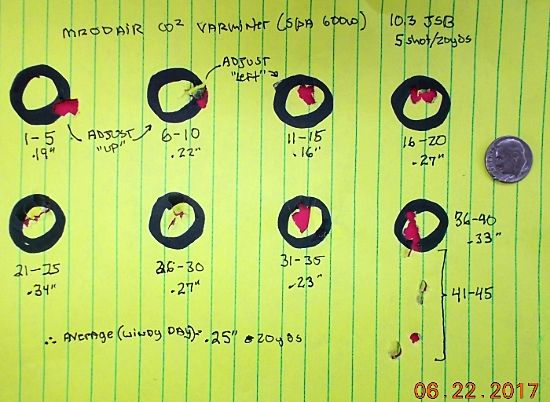 MRODAIR CO² VARMINTER (SPA 6000) 10.3 JSB
5 SHOT/20yds
ADJUST
"LEFT"
1-5
.19"
ADJUST
"UP"
6-10
.22"
11-15
.16"
16-20
.27"
21-25
.34"
26-30
.27"
31-35
.23"
36-40
.33"
41-45
∴ AVERAGE (WINDY DAY)= .25" @ 20yds
06.22.2017